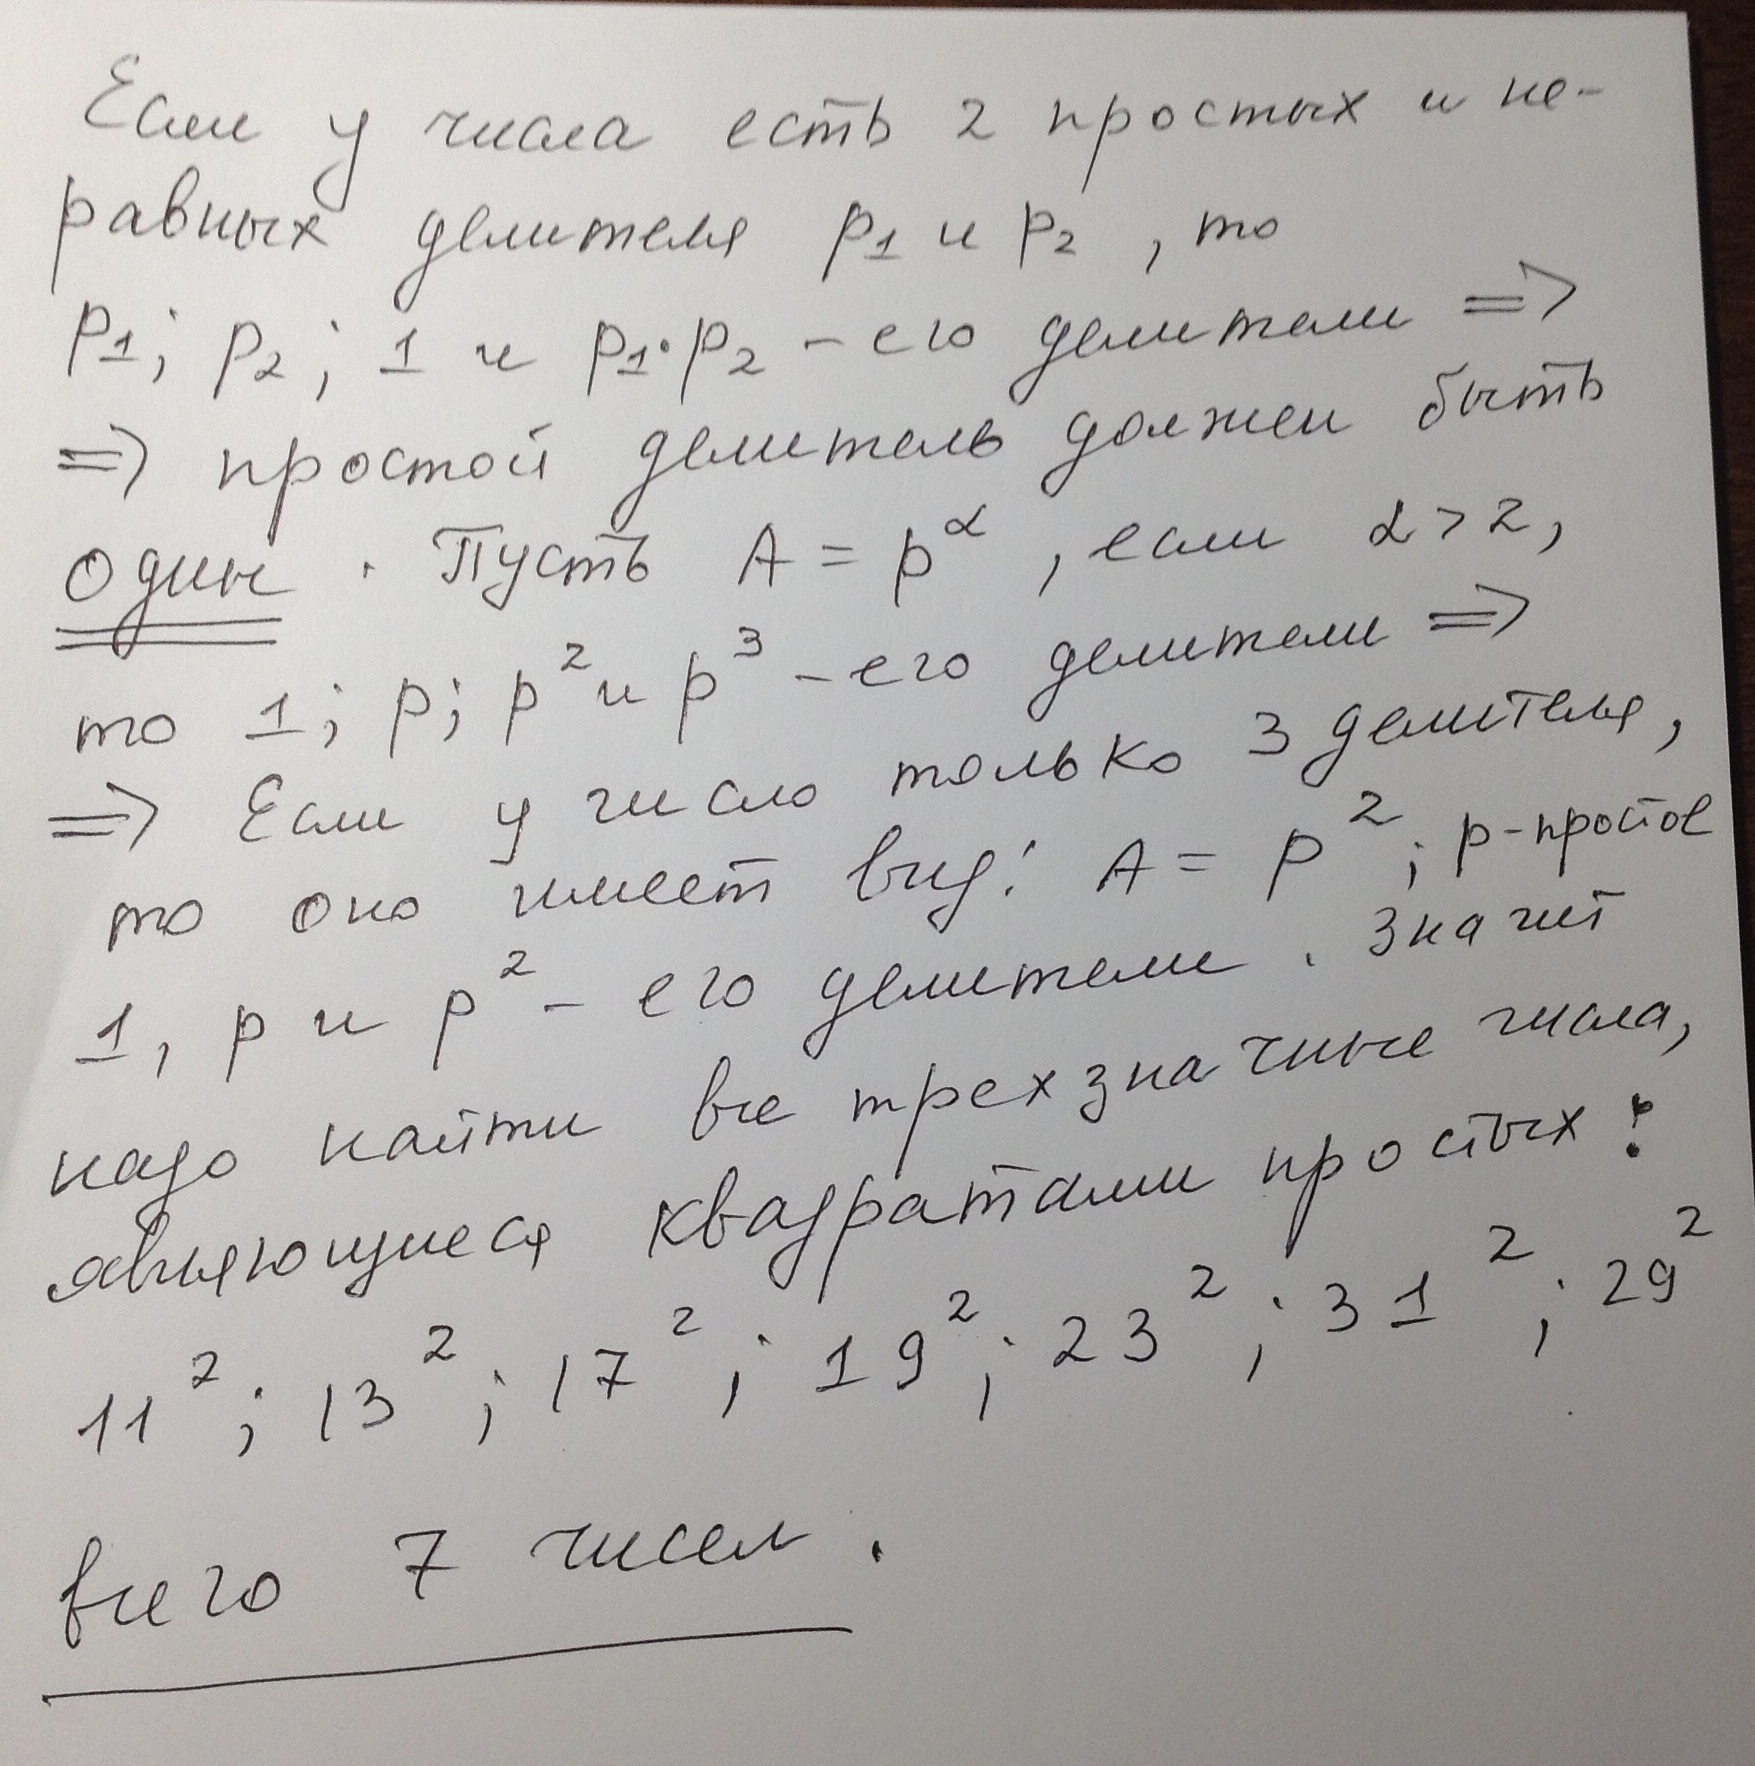 Если у числа есть 2 простых и не-
равных делителя p₁ и p₂, то
p₁; p₂; 1 и p₁·p₂ – его делители ⇒
⇒ простой делитель должен быть
один. Пусть A = p^α, если α > 2,
то 1; p; p² и p³ – его делители ⇒
⇒ Если у число только 3 делителя,
то оно имеет вид: A = p²; p-простое
1, p и p² – его делители. Значит
надо найти все трехзначные числа,
являющиеся квадратами простых:
11²; 13²; 17²; 19²; 23²; 31²; 29²
всего 7 чисел.